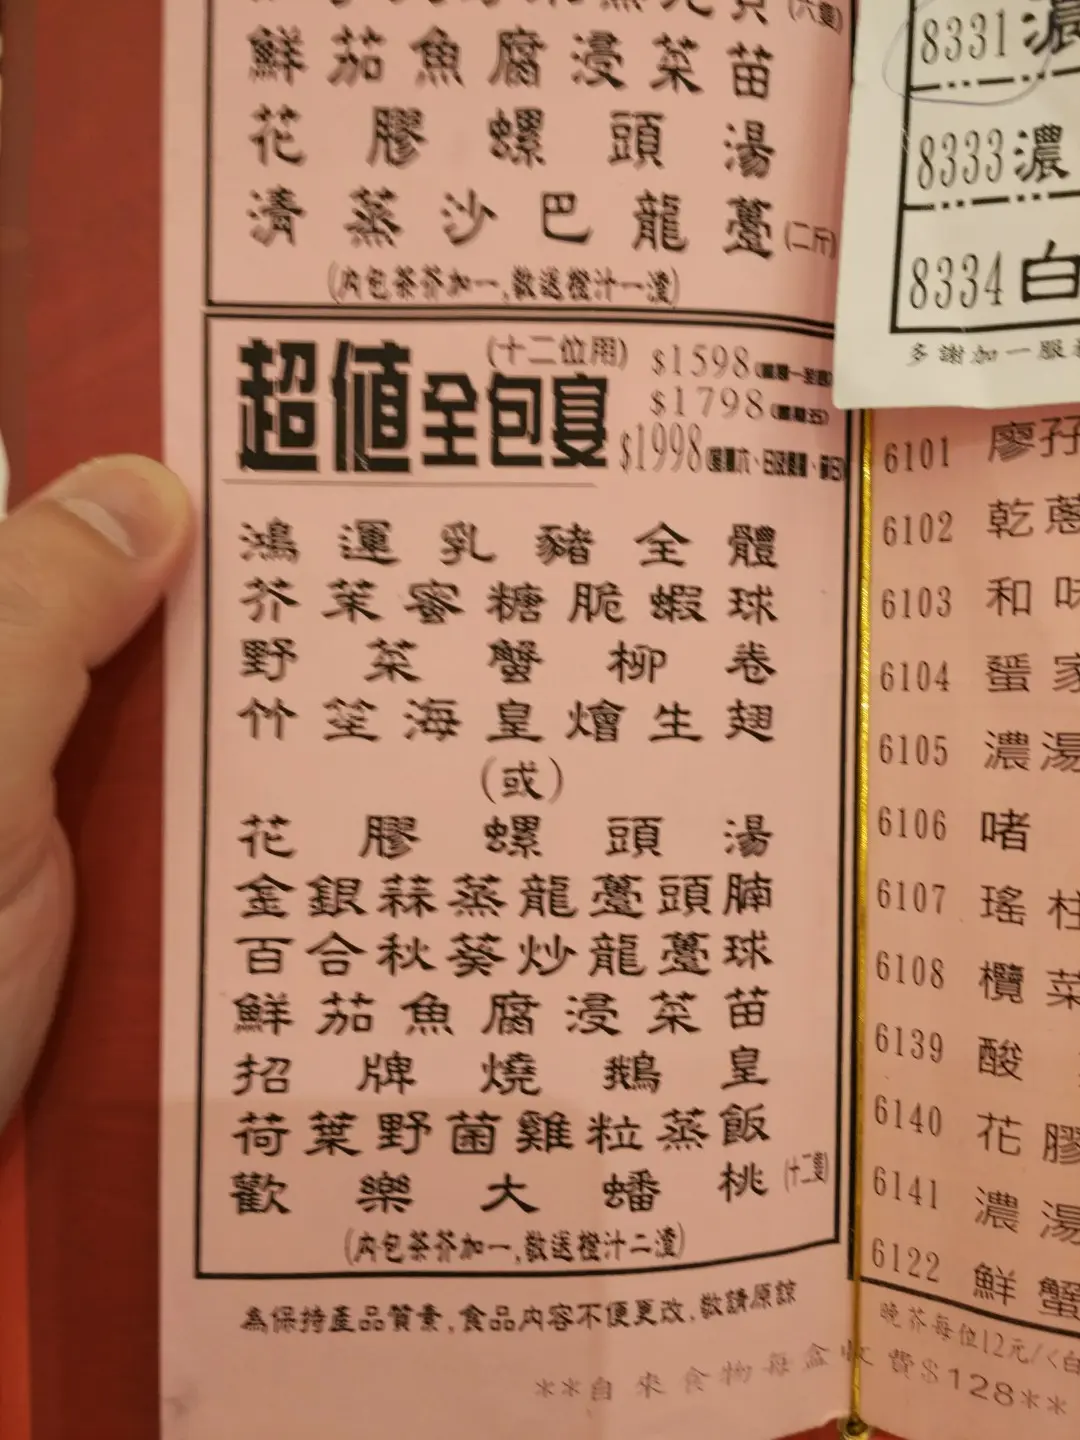 (六隻)
鮮茄魚腐浸菜苗
花膠螺頭湯
清蒸沙巴龍躉(二斤)
(內包茶芥加一,敬送橙汁一渣)
超值全包宴
(十二位用)
$1598(星期一至四)
$1798(星期五)
$1998(星期六、日及公眾、節日)
鴻運乳豬全體
芥茉蜜糖脆蝦球
野菜蟹柳卷
竹笙海皇燴生翅
(或)
花膠螺頭湯
金銀蒜蒸龍躉頭腩
百合秋葵炒龍躉球
鮮茄魚腐浸菜苗
招牌燒鵝皇
荷葉野菌雞粒蒸飯
歡樂大蟠桃(十二隻)
(內包茶芥加一,敬送橙汁二渣)
為保持產品質素,食品內容不便更改,敬請原諒
**自來食物每盒收費$128**
8331濃
8333濃
8334白
多謝加一服
6101 廖孖
6102 乾蔥
6103 和味
6104 蜑家
6105 濃湯
6106 啫
6107 瑤柱
6108 欖菜
6139 酸
6140 花膠
6141 濃湯
6122 鮮蟹
晚芥每位12元/<白